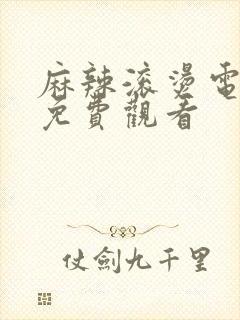 麻辣滚燙電
免費觀看
仗劍九千里